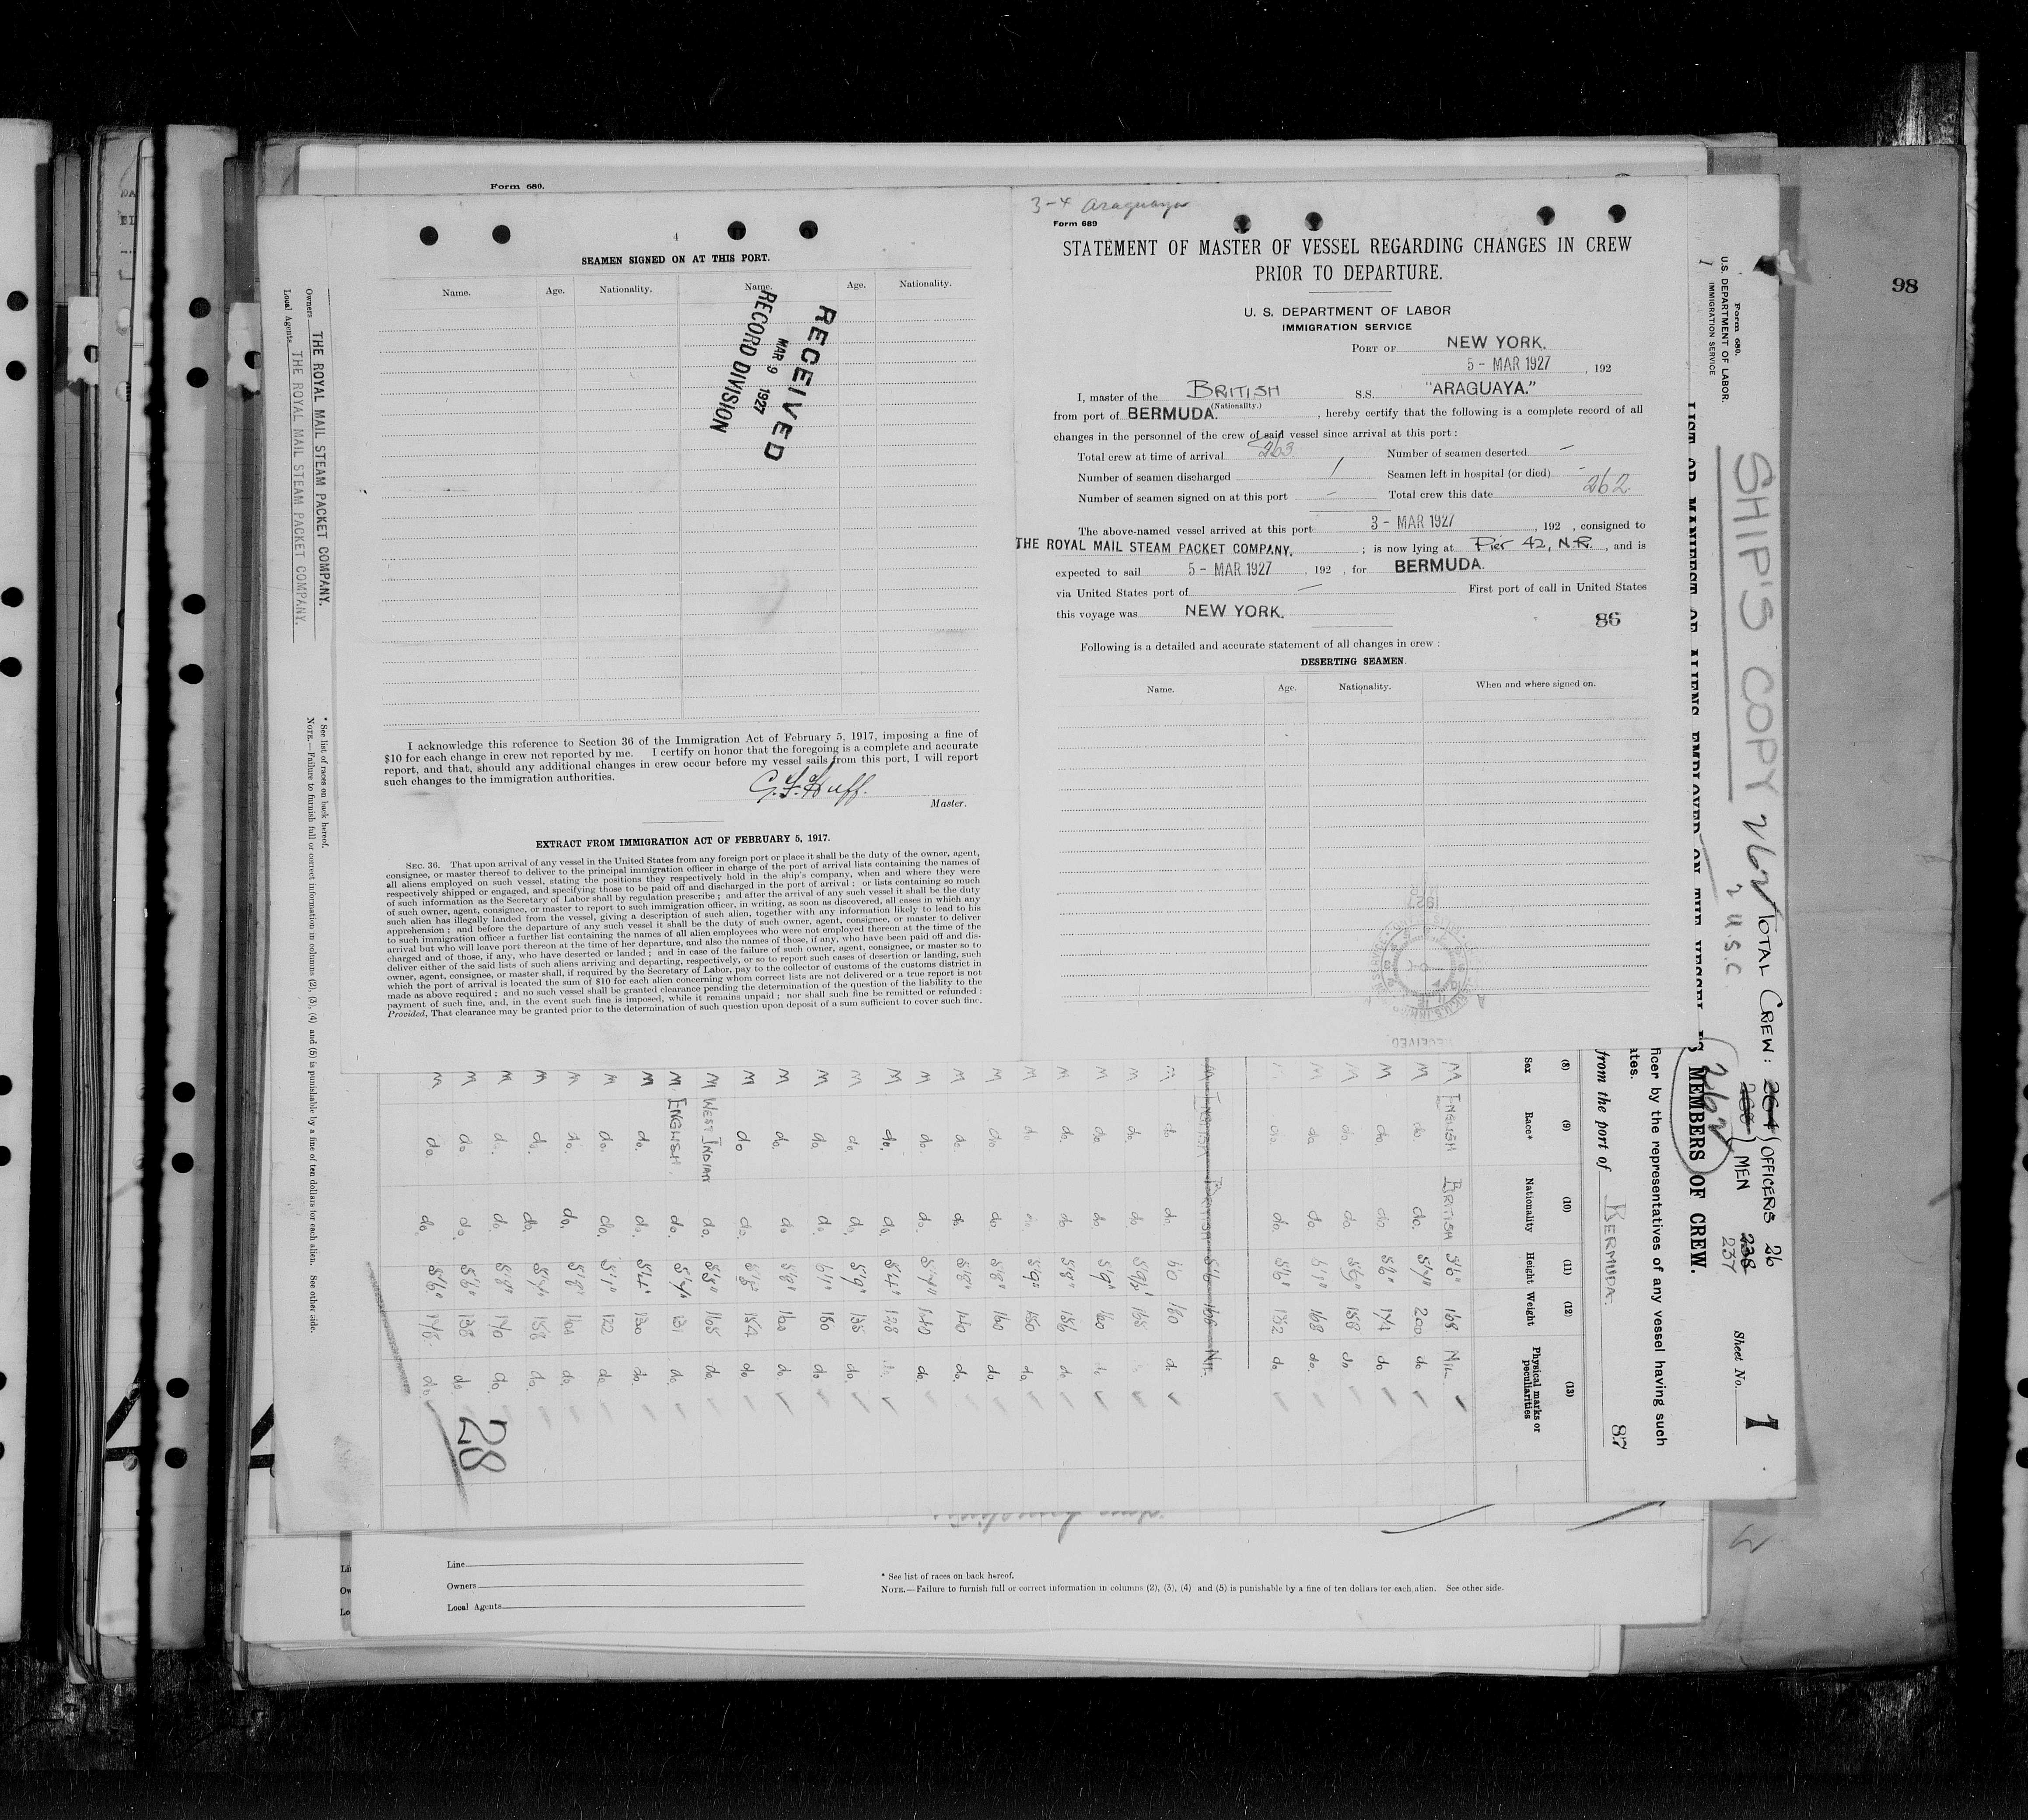 98
Form 680.
4
SEAMEN SIGNED ON AT THIS PORT.
Name. Age. Nationality. Name. Age. Nationality.
RECEIVED
MAR 9 1927
RECORD DIVISION
I acknowledge this reference to Section 36 of the Immigration Act of February 5, 1917, imposing a fine of
$10 for each change in crew not reported by me. I certify on honor that the foregoing is a complete and accurate
report, and that, should any additional changes in crew occur before my vessel sails from this port, I will report
such changes to the immigration authorities.
G. F. Huff.
Master.
EXTRACT FROM IMMIGRATION ACT OF FEBRUARY 5, 1917.
SEC. 36. That upon arrival of any vessel in the United States from any foreign port or place it shall be the duty of the owner, agent,
consignee, or master thereof to deliver to the principal immigration officer in charge of the port of arrival lists containing the names of
all aliens employed on such vessel, stating the positions they respectively hold in the ship's company, when and where they were
respectively shipped or engaged, and specifying those to be paid off and discharged in the port of arrival; or lists containing so much
of such information as the Secretary of Labor shall by regulation prescribe; and after the arrival of any such vessel it shall be the duty
of such owner, agent, consignee, or master to report to such immigration officer, in writing, as soon as discovered, all cases in which any
such alien has illegally landed from the vessel, giving a description of such alien, together with any information likely to lead to his
apprehension; and before the departure of any such vessel it shall be the duty of such owner, agent, consignee, or master to deliver
to such immigration officer a further list containing the names of all alien employees who were not employed thereon at the time of the
arrival but who will leave port thereon at the time of her departure, and also the names of those, if any, who have been paid off and dis-
charged and of those, if any, who have deserted or landed; and in case of the failure of such owner, agent, consignee, or master so to
deliver either of the said lists of such aliens arriving and departing, respectively, or so to report such cases of desertion or landing, such
owner, agent, consignee, or master shall, if required by the Secretary of Labor, pay to the collector of customs of the customs district in
which the port of arrival is located the sum of $10 for each alien concerning whom correct lists are not delivered or a true report is not
made as above required; and no such vessel shall be granted clearance pending the determination of the question of the liability to the
payment of such fine, and, in the event such fine is imposed, while it remains unpaid; nor shall such fine be remitted or refunded:
Provided, That clearance may be granted prior to the determination of such question upon deposit of a sum sufficient to cover such fine.
3-4 Araguaya
Form 689
STATEMENT OF MASTER OF VESSEL REGARDING CHANGES IN CREW
PRIOR TO DEPARTURE.
U. S. DEPARTMENT OF LABOR
IMMIGRATION SERVICE
PORT OF NEW YORK.
5 - MAR 1927, 192
I, master of the BRITISH S.S. "ARAGUAYA."
(Nationality.)
from port of BERMUDA., hereby certify that the following is a complete record of all
changes in the personnel of the crew of said vessel since arrival at this port:
Total crew at time of arrival 263 Number of seamen deserted –
Number of seamen discharged 1 Seamen left in hospital (or died) -
Number of seamen signed on at this port – Total crew this date 262
The above-named vessel arrived at this port 3 - MAR 1927, 192 , consigned to
THE ROYAL MAIL STEAM PACKET COMPANY. ; is now lying at Pier 42, N.R., and is
expected to sail 5 - MAR 1927, 192 , for BERMUDA.
via United States port of — First port of call in United States
this voyage was NEW YORK.
86
Following is a detailed and accurate statement of all changes in crew:
DESERTING SEAMEN.
Name. Age. Nationality. When and where signed on.
Form 680.
U. S. DEPARTMENT OF LABOR.
IMMIGRATION SERVICE
SHIP'S COPY
262
2 U.S.C.
TOTAL CREW: 264 OFFICERS 26
MEN 238
237
LIST OR MANIFEST OF ALIENS EMPLOYED ON THE VESSEL AS MEMBERS OF CREW.
262
ficer by the representatives of any vessel having such
ates.
from the port of BERMUDA.
Sheet No. 1
87
(8) (9) (10) (11) (12) (13)
Sex Race* Nationality Height Weight Physical marks or peculiarities
M ENGLISH BRITISH 5'6" 168 NIL
M do do. 5'7" 200 do
M do. do 5'6" 174 do
M do. do 5'9" 158 do
M do do 168 do.
do. do. 5'6" 132 do
M ENGLISH BRITISH 5'6" 168 NIL.
M do do. 6'0 180 do
M do. do 168
M do do. 5'9" 160
M do. do 5'8" 156 do
M do. 5'9" 150 do
M do do 5'8" 160 do.
M do. do. 5'8" 140 do.
M do. do 5'7" 140 do.
M do. do. 5'4" 128
M do do. 5'9" 135 do.
M do do. 6'1" 180 do
M do. do 5'8" 160 do.
M do do. 154 do
M WEST INDIAN do. 5'8" 165 do.
M. ENGLISH. do. 5'4" 131 do.
M do. do. 5'4" 130 do.
M do. do. 5'7" 122 do.
M do. do. 5'8" do.
M do. do. 5'7" 158 do.
M do. do. 5'8" 140 do.
M do do. 5'6" 138 do.
M do. do. 5'6" 148 do.
28
Owners THE ROYAL MAIL STEAM PACKET COMPANY.
Local Agents THE ROYAL MAIL STEAM PACKET COMPANY.
* See list of races on back hereof.
NOTE.—Failure to furnish full or correct information in columns (2), (3), (4) and (5) is punishable by a fine of ten dollars for each alien. See other side.
Line
Owners
Local Agents
* See list of races on back hereof.
NOTE.—Failure to furnish full or correct information in columns (2), (3), (4) and (5) is punishable by a fine of ten dollars for each alien. See other side.